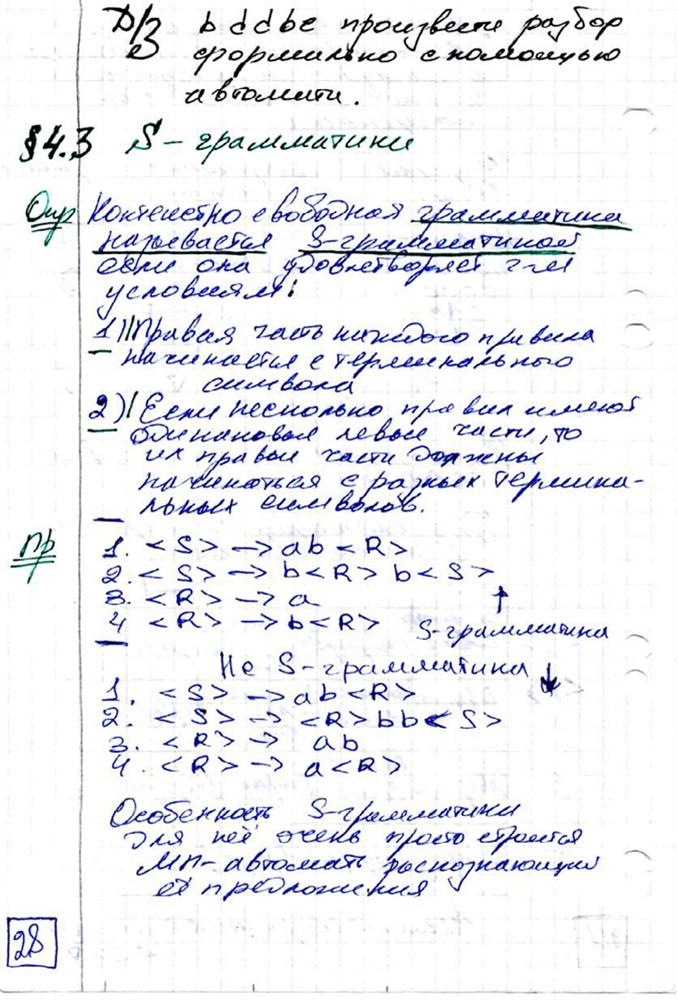 Д/З bddbc произвести разбор
формально с помощью
автомата.
§4.3 S-грамматики
Опр Контекстно свободная грамматика
называется S-грамматикой
если она удовлетворяет 2-м
условиям:
1) Правая часть каждого правила
начинается с терминального
символа
2) Если несколько правил имеют
одинаковые левые части, то
их правые части должны
начинаться с разных термина-
льных символов.
Пр 1. <S> → ab<R>
2. <S> → b<R>b<S>
3. <R> → a ↑
4 <R> → b<R> S-грамматика
Не S-грамматика ↓
1. <S> → ab<R>
2. <S> → <R>bb<S>
3. <R> → ab
4. <R> → a<R>
Особенность S-грамматики
для неё очень просто строется
МП-автомать распознающий
её предложения
28